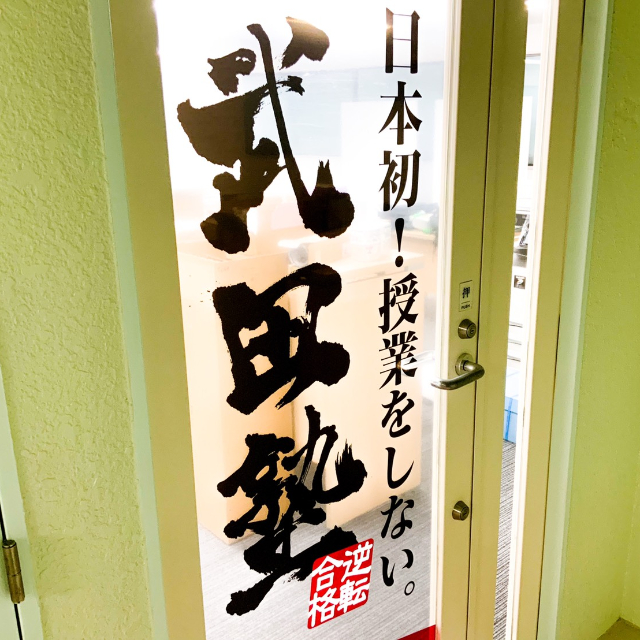 日本初！授業をしない。
武田塾
逆転
合格
押